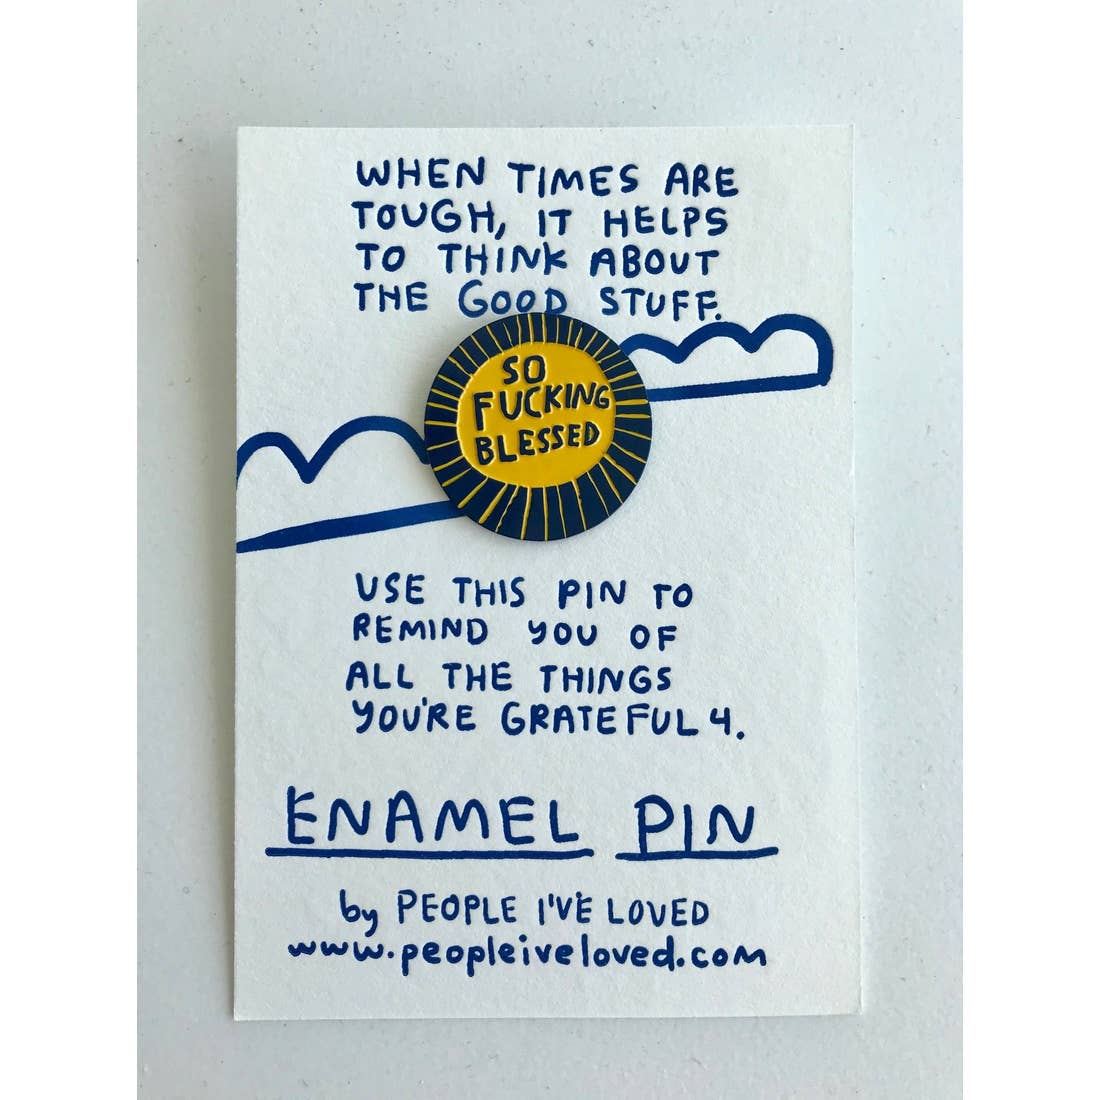 WHEN TIMES ARE
TOUGH, IT HELPS
TO THINK ABOUT
THE GOOD STUFF.
SO
FUCKING
BLESSED
USE THIS PIN TO
REMIND YOU OF
ALL THE THINGS
YOU'RE GRATEFUL 4.
ENAMEL PIN
by PEOPLE I'VE LOVED
www.peopleiveloved.com